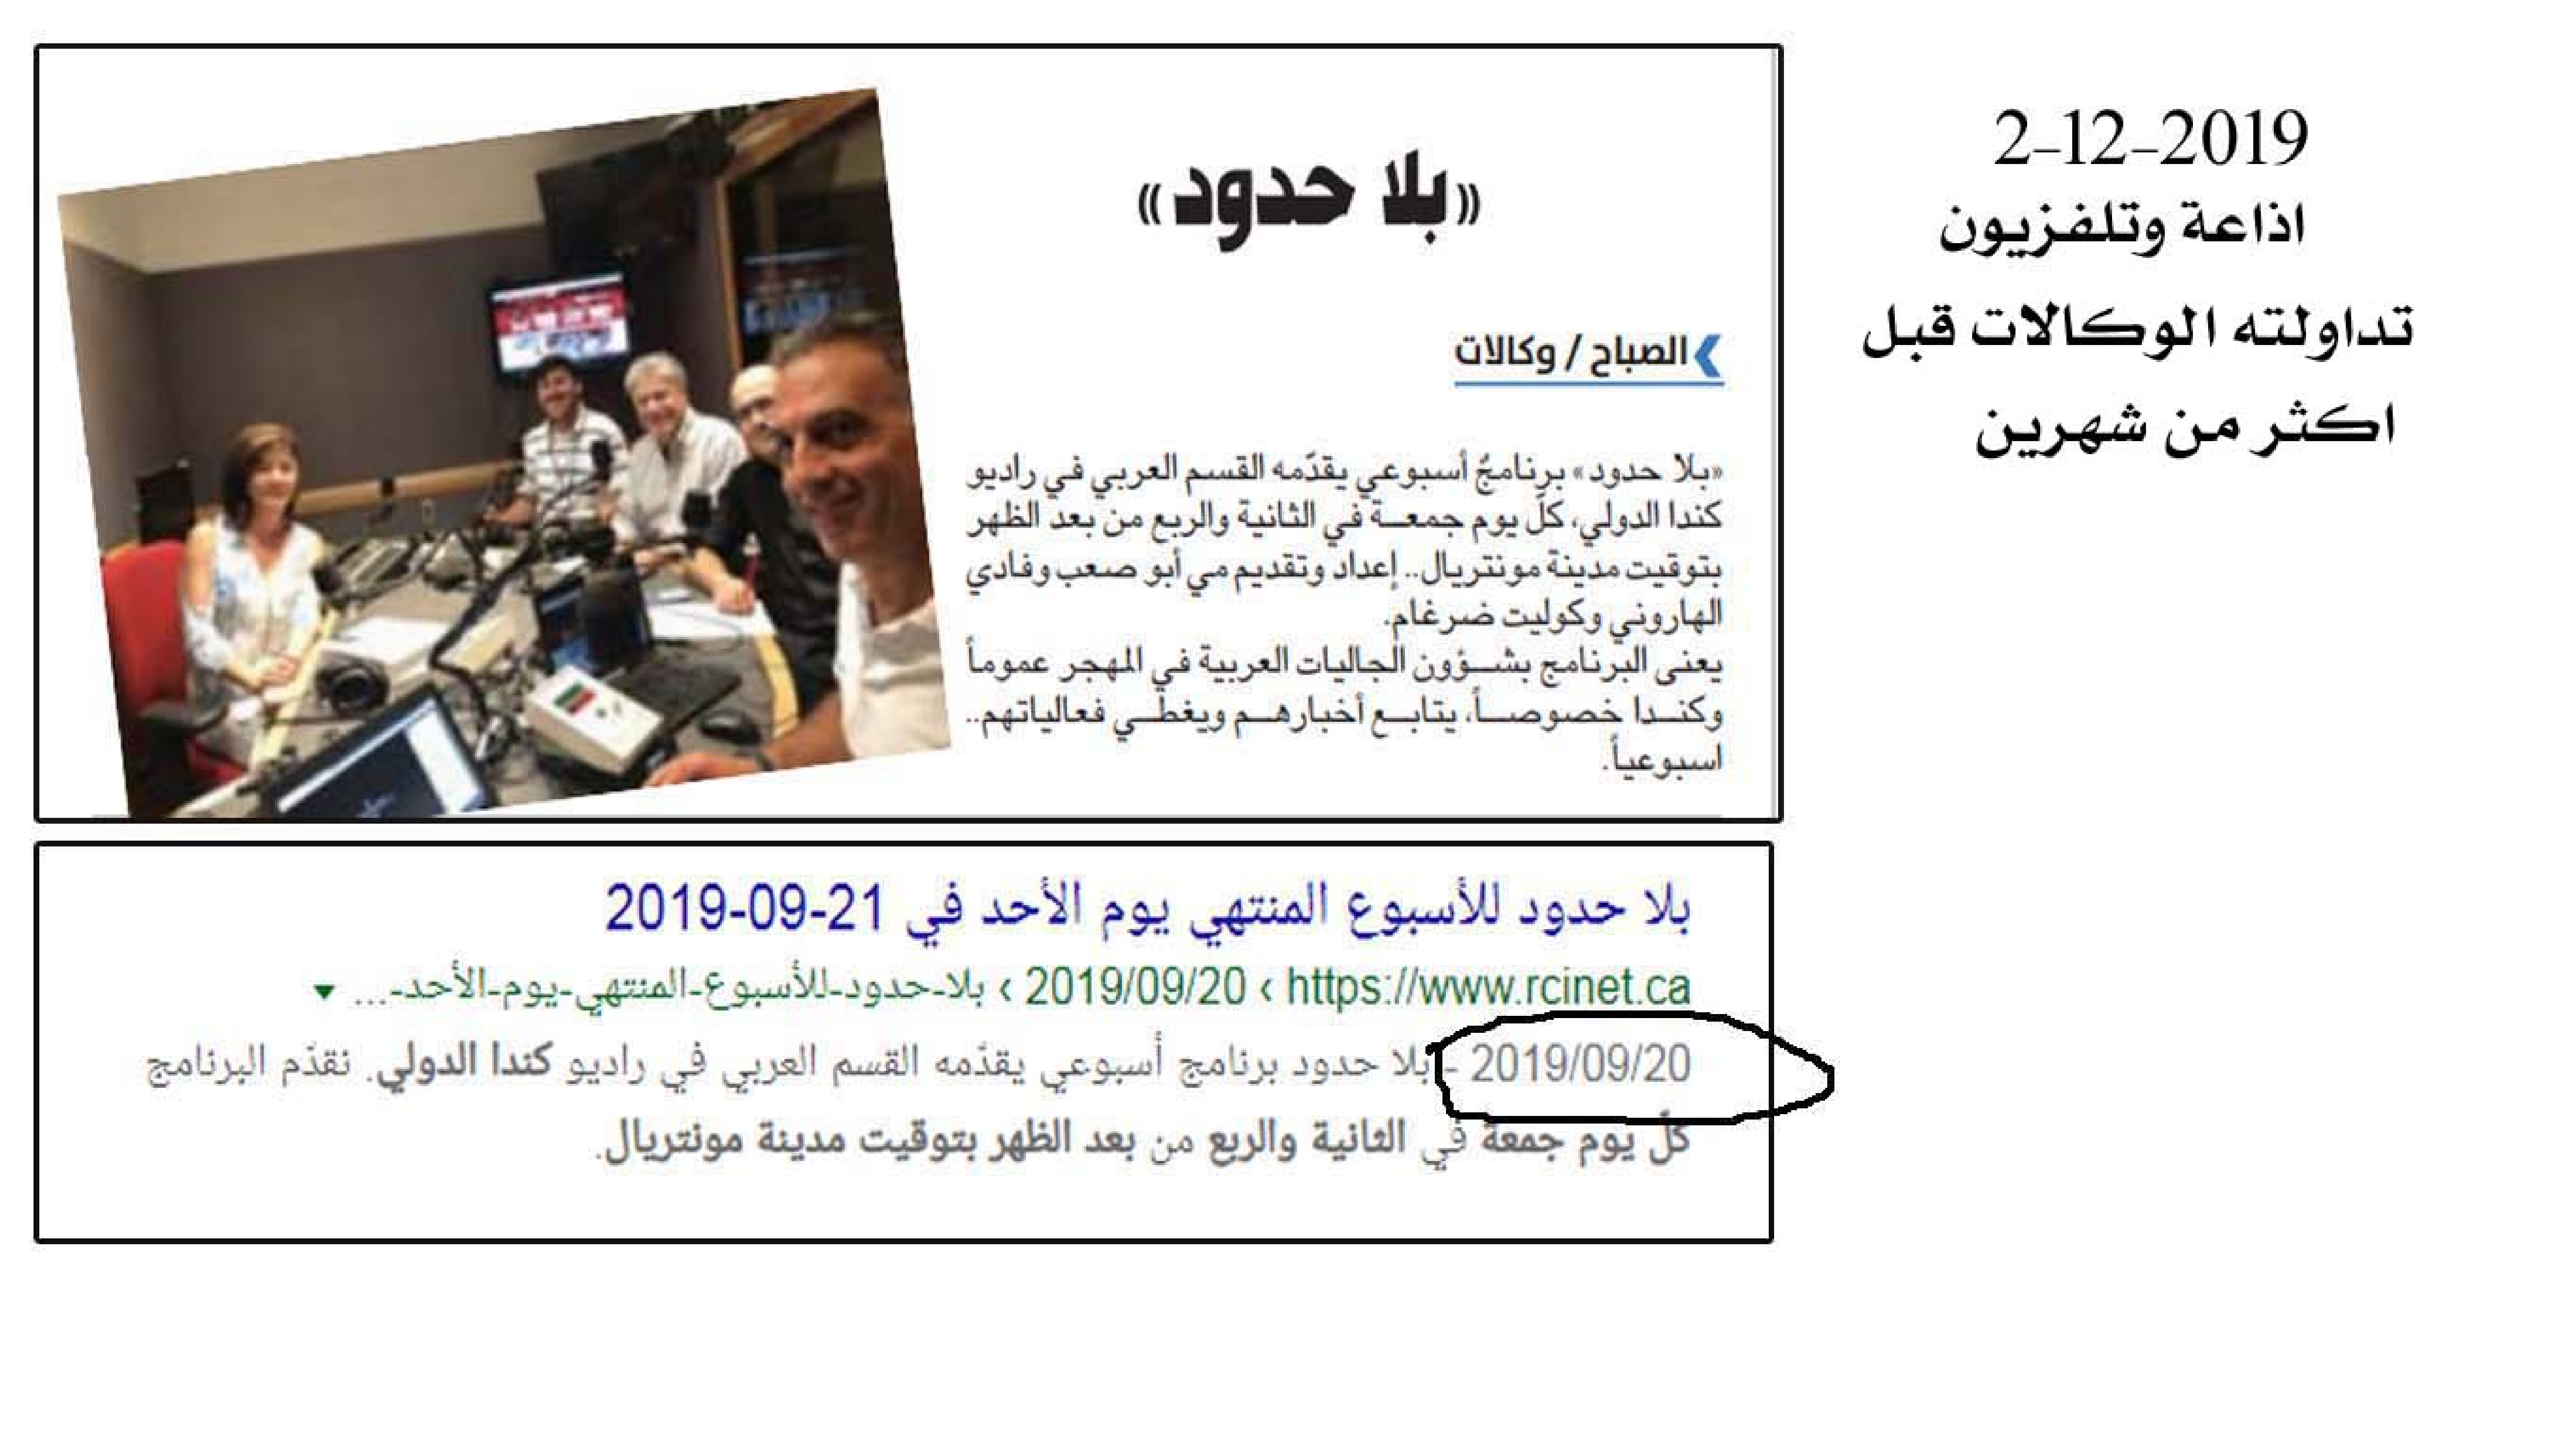 2-12-2019
اذاعة وتلفزيون
تداولته الوكالات قبل
اكثر من شهرين
«بلا حدود»
الصباح / وكالات
«بلا حدود» برنامجٌ أسبوعي يقدّمه القسم العربي في راديو
كندا الدولي، كلّ يوم جمعـــة في الثانية والربع من بعد الظهر
بتوقيت مدينة مونتريال.. إعداد وتقديم مي أبو صعب وفادي
الهاروني وكوليت ضرغام.
يعنى البرنامج بشـــؤون الجاليات العربية في المهجر عموماً
وكنـــدا خصوصـــاً، يتابـــع أخبارهـــم ويغطـــي فعالياتهم..
اسبوعياً.
بلا حدود للأسبوع المنتهي يوم الأحد في 21-09-2019
https://www.rcinet.ca › 2019/09/20 › بلا-حدود-للأسبوع-المنتهي-يوم-الأحد-...
2019/09/20 - بلا حدود برنامج أسبوعي يقدّمه القسم العربي في راديو كندا الدولي. نقدّم البرنامج
كلّ يوم جمعة في الثانية والربع من بعد الظهر بتوقيت مدينة مونتريال.